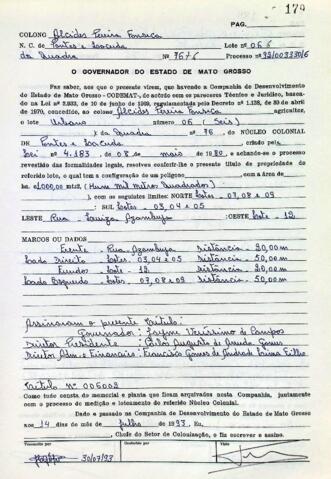 PAG. 179
COLONO Alcides Pereira Fonseca
N. C. de Pontes e Lacerda Lote nº 06
da Quadra Nº 76 Processo nº
O GOVERNADOR DO ESTADO DE MATO GROSSO
Faz saber, aos que o presente virem, que havendo a Companhia de Desenvolvimento
do Estado de Mato Grosso - CODEMAT, de acordo com os pareceres Técnico e Jurídico, basea-
do na Lei nº 2.933, de 10 de junho de 1969, regulamentada pelo Decreto nº 1.138, de 30 de abril
de 1970, concedido, ao colono, Alcides Pereira Fonseca agricultor,
o lote Urbano número 06 (Seis)
da Quadra nº 76, do NÚCLEO COLONIAL
DE Pontes e Lacerda criado pela
Lei nº 4.183, de 08 de maio de 1980, e achando-se o processo
revestido das formalidades legais, resolveu conferir-lhe o presente título de propriedade do
referido lote, o qual tem a configuração de um polígono com a área de
ha 1.000,00 mts2, (Hum Mil Metros Quadrados)
com os seguintes limites: NORTE Lotes - 07, 08 e 09
SUL Lotes - 03, 04 e 05
LESTE Rua - Azambuja OESTE Lote - 12
MARCOS OU DADOS
Frente - Rua Azambuja Distância - 20,00m
Lado Direito - Lotes - 03, 04 e 05 Distância - 50,00m
Fundos - Lote - 12 Distância - 20,00m
Lado Esquerdo - Lotes - 07, 08 e 09 Distância - 50,00m
Assinaram o presente título:
Governador - Jayme Veríssimo de Campos
Diretor Presidente - Augusto de Arruda Gomes
Diretor Adm. e Financeiro - Francisco Gomes de Andrade Lima Filho
Título Nº 006003
Como tudo consta do memorial e planta que ficam arquivados nesta Companhia, juntamente
com o processo de medição e loteamento do referido Núcleo Colonial.
Dado e passado na Companhia de Desenvolvimento do Estado de Mato Grosso
aos 14 dias do mês de julho de 1993. Eu,
Chefe do Setor de Colonização, o fiz escrever e assino.
Transcrito por Conferido por Visto
30/07/93